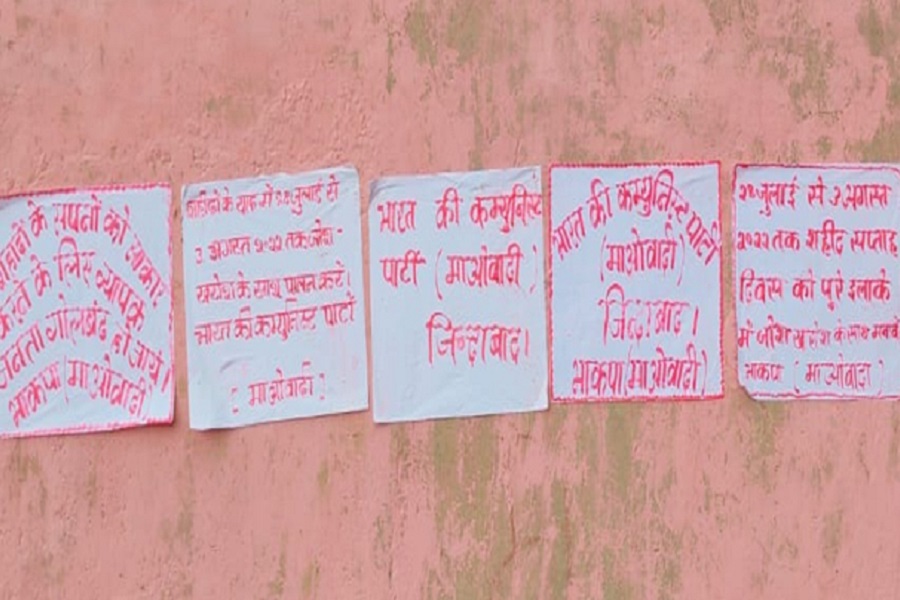 शहीदों के सपनों को साकार
करने के लिए व्यापक
जनता गोलबंद हो जायें।
भाकपा (माओवादी)
शहीदों के याद में २८ जुलाई से
३ अगस्त २०२२ तक जोश-
खरोश के साथ पालन करें।
भारत की कम्युनिस्ट पार्टी
[ माओवादी ]
भारत की कम्युनिस्ट
पार्टी (माओवादी)
जिन्दाबाद।
भारत की कम्युनिस्ट पार्टी
(माओवादी)
जिन्दाबाद।
भाकपा (माओवादी)
२८ जुलाई से ३ अगस्त
२०२२ तक शहीद सप्ताह
दिवस को पुरे इलाके
में जोश खरोश के साथ मनावें
भाकपा (माओवादी)